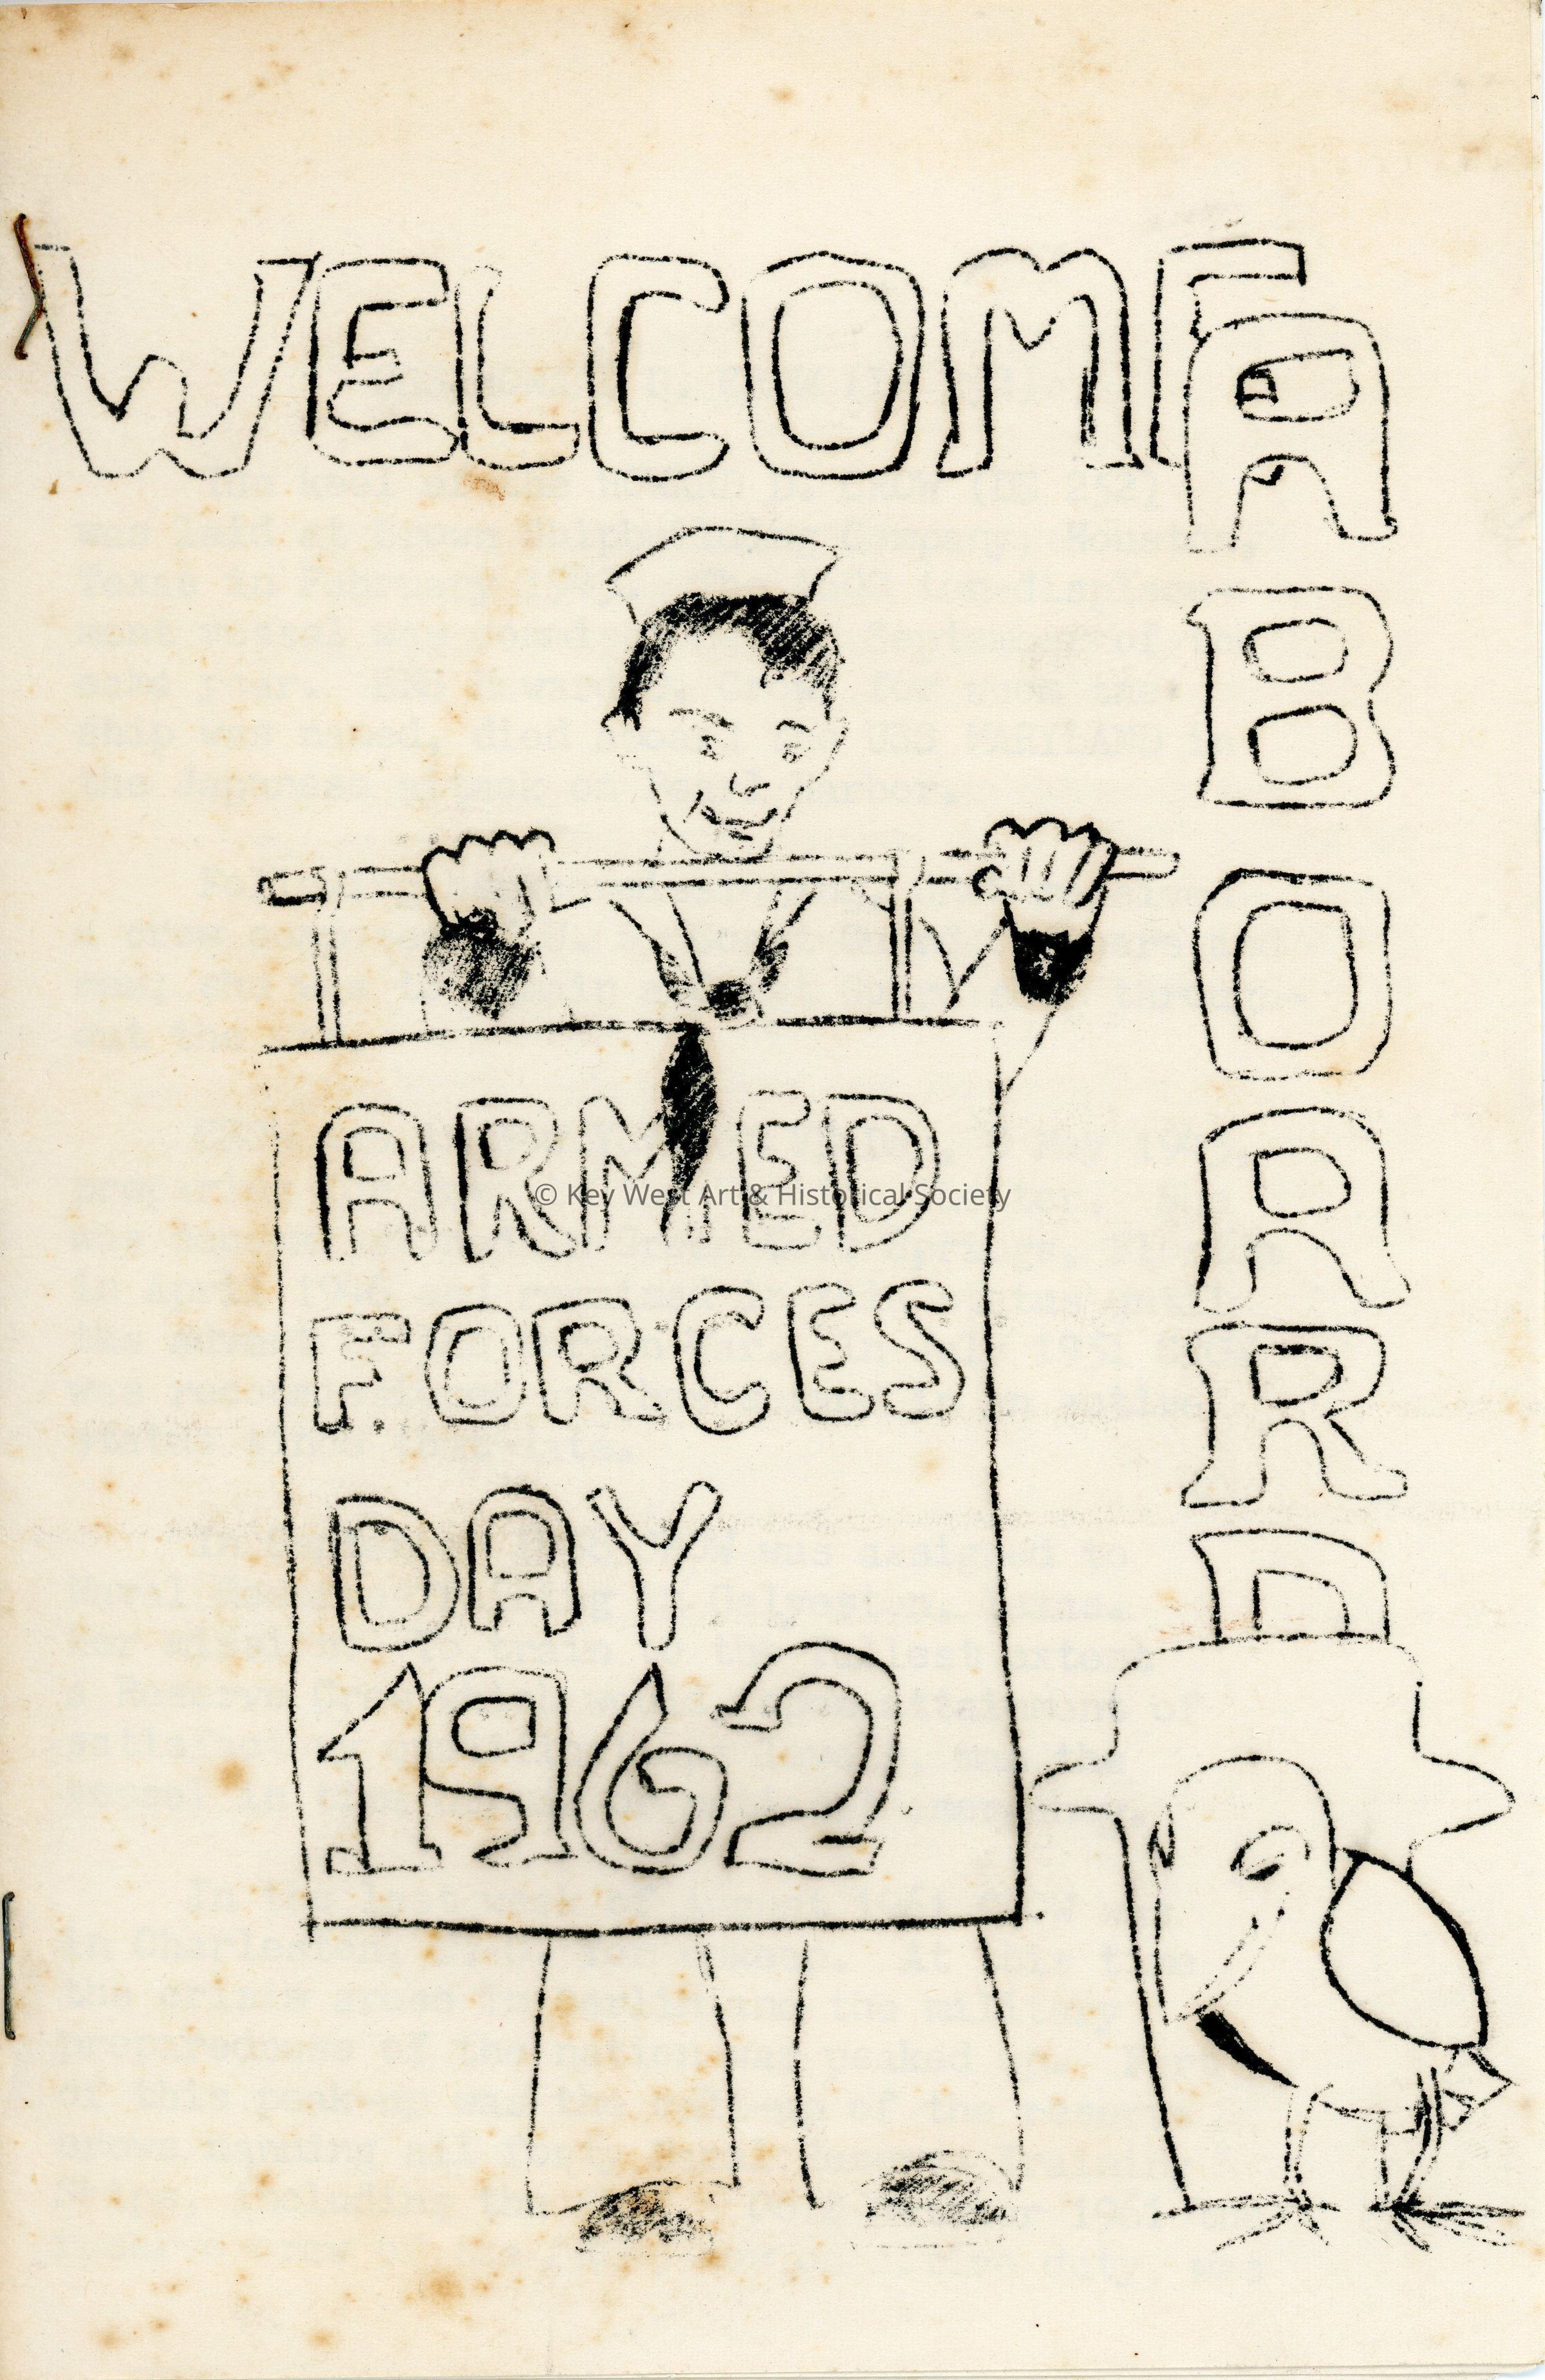 WELCOME
ABOARD
ARMED
FORCES
DAY
1962
© Key West Art & Historical Society